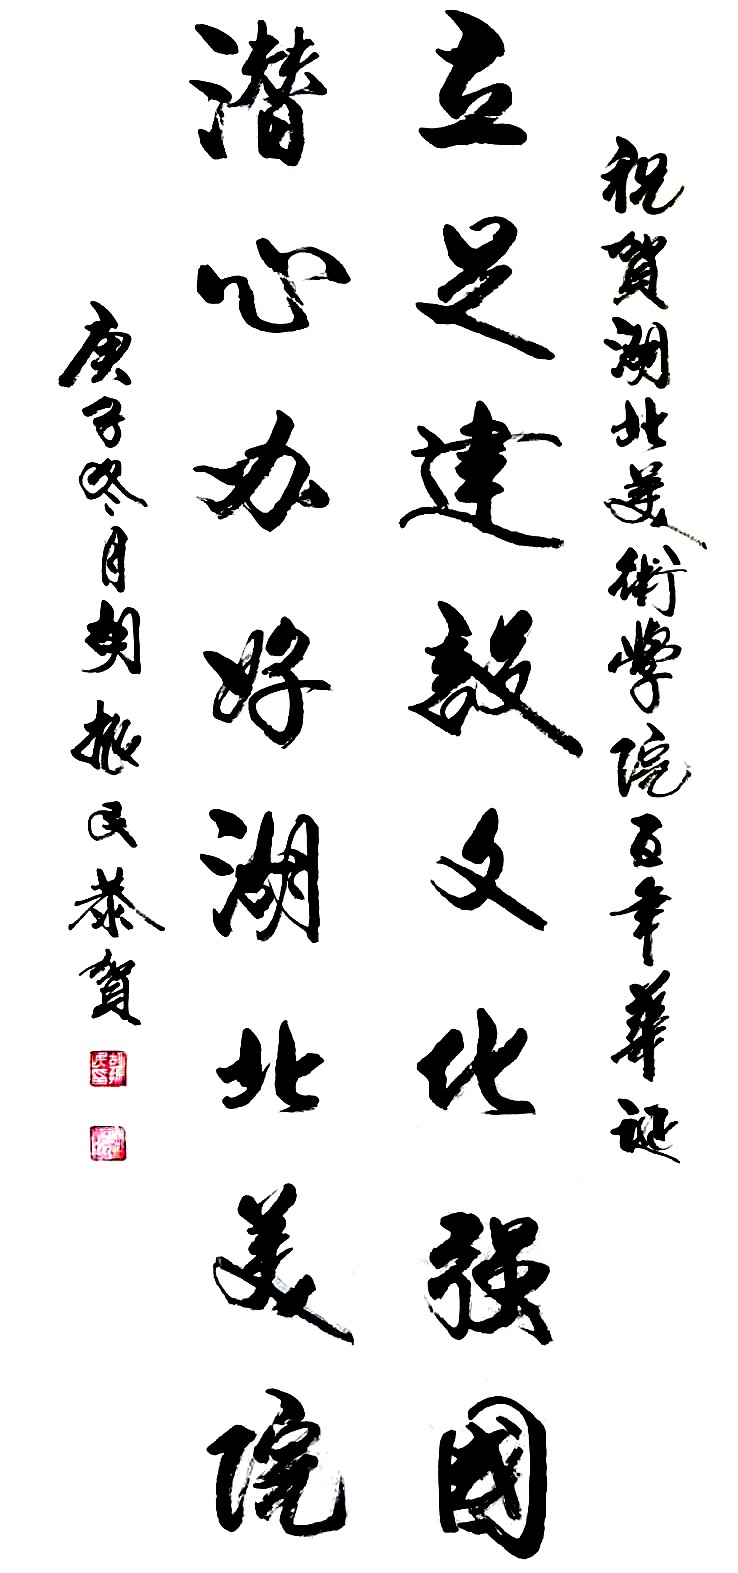 祝賀湖北美術學院百年華誕
立足建設文化强國
潜心办好湖北美院
庚子冬月胡振民恭賀